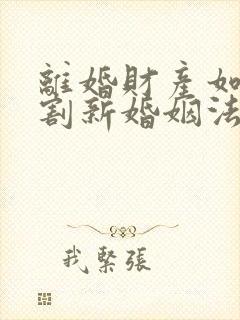 離婚財產如
割新婚姻法
我緊張